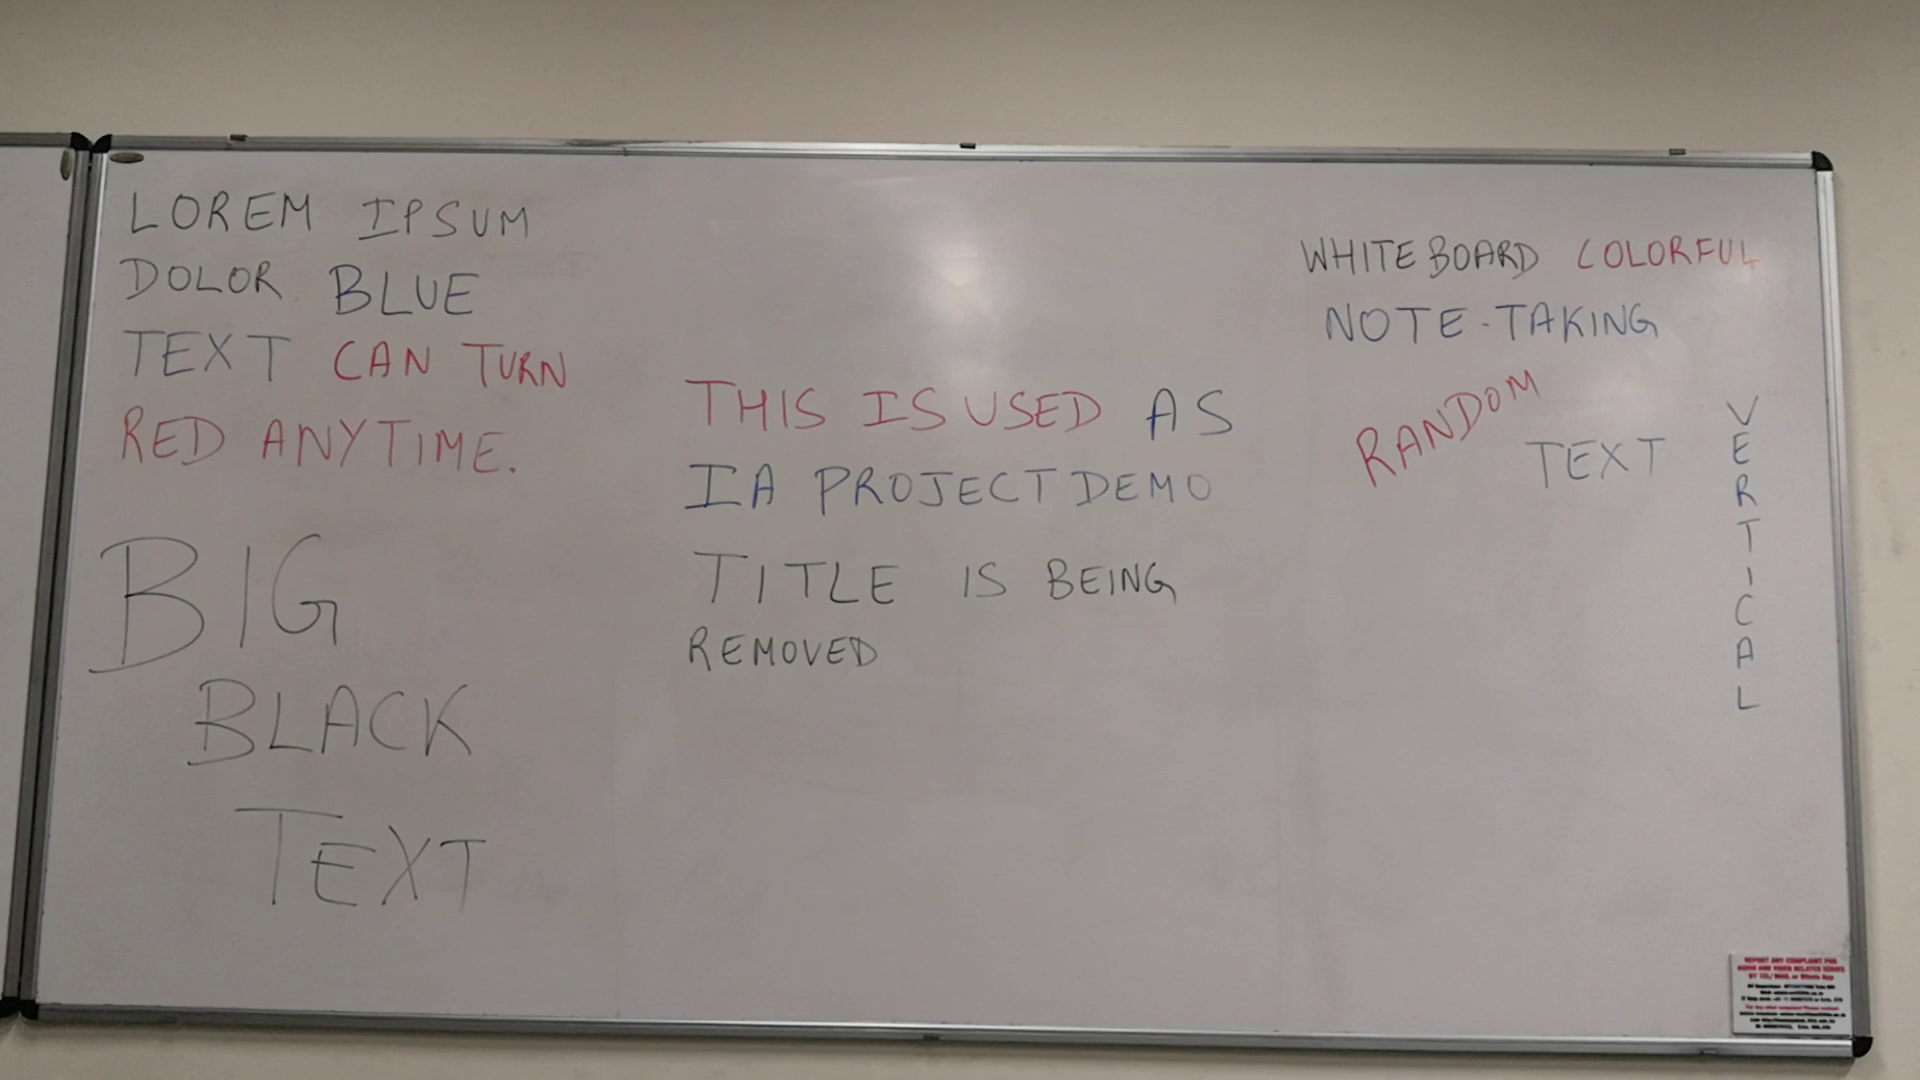 LOREM IPSUM
DOLOR BLUE
TEXT CAN TURN
RED ANYTIME.
BIG
BLACK
TEXT
THIS IS USED AS
IA PROJECT DEMO
TITLE IS BEING
REMOVED
WHITEBOARD COLORFUL
NOTE-TAKING
RANDOM
TEXT
VERTICAL
REPORT ANY COMPLAINT FOR
AUDIO AND VIDEO RELATED ISSUES